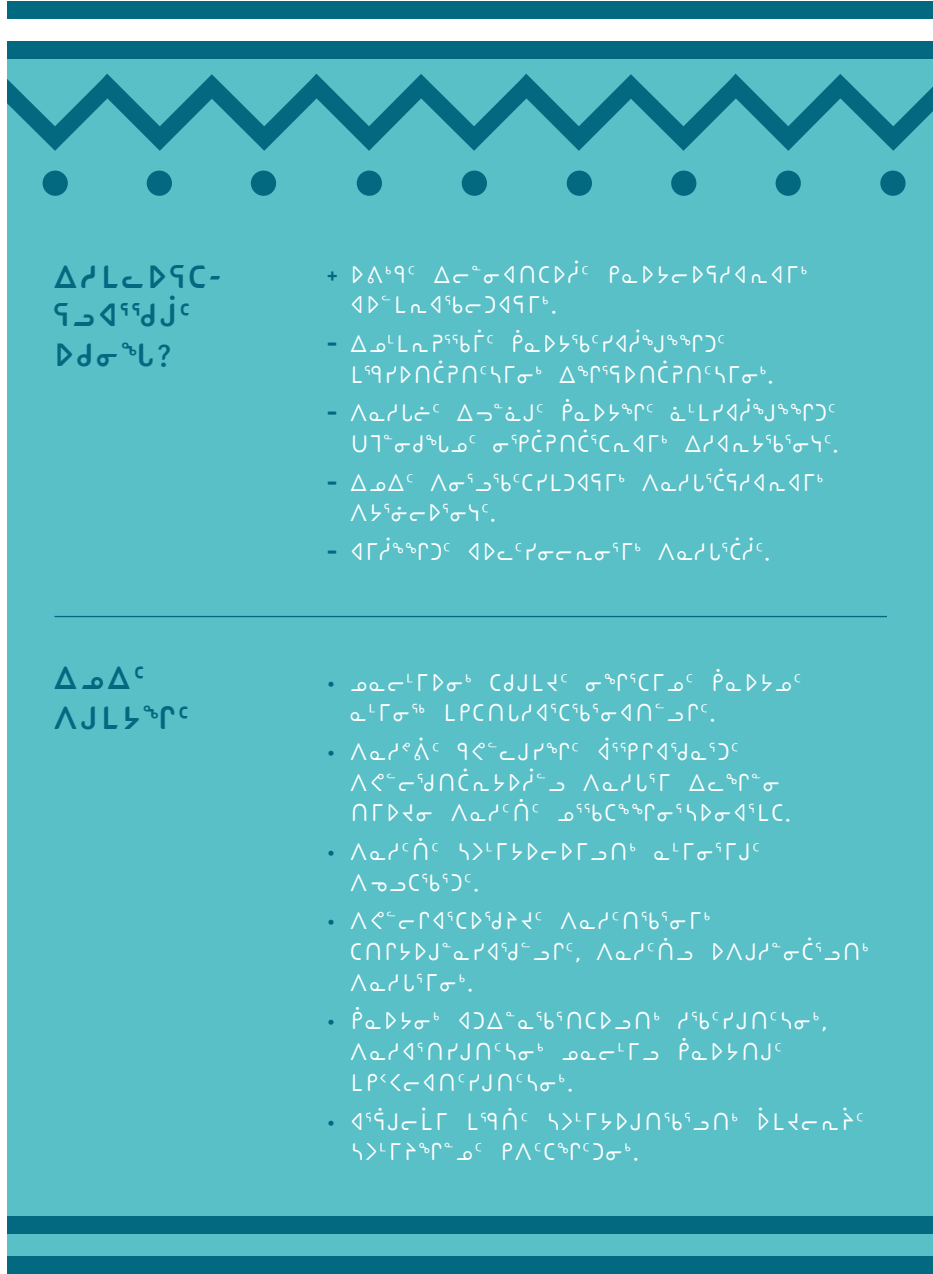 ᐃᓱᒪᓚᐅᕋᑕ-
ᕋᓗᐊᕐᖁᒑᑦ
ᐅᑯᓂᖓ?
+ ᐅᕕᒃᑫᑦ ᐃᓕᓐᓂᐊᑎᑕᐅᓲᑦ ᑭᓇᐅᔭᓕᐅᕋᓱᐊᕆᐊᒥᒃ
ᐊᐅᓪᒪᕆᐊᖃᓕᑐᐊᕋᒥᒃ.
- ᐃᓄᒻᒪᕆᕈᖅᑳᒦᑦ ᑮᓇᐅᔭᖃᑦᓯᐊᓲᖑᙱᑐᑦ
ᒪᕐᕿᓯᐅᑎᑖᕈᑎᑦᓴᒥᓂᒃ ᐃᖏᕐᕋᐅᑎᑖᕈᑎᑦᓴᒥᓂᒃ.
- ᐱᓇᓱᒐᓖᑦ ᐃᓘᓐᓈᒍᑦ ᑮᓇᐅᔭᖏᑦ ᓈᒻᒪᓯᐊᓲᖑᙱᑐᑦ
ᑌᒣᓐᓂᑯᖓᓄᑦ ᓂᕿᑖᕈᑎᑖᕐᑕᕆᐊᒥᒃ ᐃᓱᐊᕆᔭᖃᕐᓂᓭᑦ.
- ᐃᓄᐃᑦ ᐱᓂᕐᓗᖃᑦᑕᓯᒪᑐᐊᕋᒥᒃ ᐱᓇᓱᒐᕐᑖᕋᓱᐊᕆᐊᒥᒃ
ᐱᔭᕐᓃᓕᐅᕐᓂᓭᑦ.
- ᐊᒥᓲᙱᑐᑦ ᐊᐅᓚᑦᓯᓂᓕᕆᓂᕐᒥᒃ ᐱᓇᓱᒐᕐᑖᓲᑦ.
ᐃᓄᐃᑦ
ᐱᒍᒪᔭᖏᑦ
• ᓄᓇᓕᒻᒥᐅᓂᒃ ᑕᑯᒍᒪᔪᑦ ᓂᖏᕐᑕᒥᓄᑦ ᑮᓇᐅᔭᓄᑦ
ᓇᒻᒥᓂᖅ ᒪᑭᑕᑎᒐᓱᐊᕐᑕᖃᕐᓂᐊᑎᓪᓗᒋᑦ.
• ᐱᓇᓱᕝᕖᑦ ᑫᕙᓪᓚᒍᓯᖏᑦ ᐋᕐᕿᒋᐊᖁᓇᕐᑐᑦ
ᐱᕙᓪᓕᖁᑎᑖᕆᔭᐅᓲᓪᓗ ᐱᓇᓱᒐᕐᒥ ᐃᓚᖏᓐᓂ
ᑎᒥᐅᔪᓂ ᐱᓇᓱᑦᑏᑦ ᓄᕐᖃᑕᙱᓂᕐᓴᐅᓂᐊᕐᒪᑕ.
• ᐱᓇᓱᑦᑏᑦ ᓴᐳᒻᒥᔭᐅᓕᐅᒥᓗᑎᒃ ᓇᒻᒥᓂᕐᒥᒍᑦ
ᐱᓀᓗᑕᖃᕐᑐᑦ.
• ᐱᕙᓪᓕᒋᐊᕐᑕᐅᖁᔨᔪᑦ ᐱᓇᓱᑦᑎᖃᕐᓂᒥᒃ
ᑕᑎᒋᔭᐅᒍᓐᓇᓯᐊᖁᓪᓗᒋᑦ, ᐱᓇᓱᑦᑏᓗ ᐅᐱᒍᓱᓐᓂᑖᕐᓗᑎᒃ
ᐱᓇᓱᒐᕐᒥᓂᒃ.
• ᑮᓇᐅᔭᓂᒃ ᐊᑐᐃᓐᓇᖃᕐᑎᑕᐅᓗᑎᒃ ᓱᖃᑦᓯᒍᑎᑦᓴᓂᒃ,
ᐱᓇᓱᐊᕐᑎᓯᒍᑎᑦᓴᓂᒃ ᓄᓇᓕᒻᒥᓗ ᑮᓇᐅᔭᑎᒍᑦ
ᒪᑭᑉᐸᓕᐊᑎᑦᓯᒍᑎᑦᓴᓂᒃ.
• ᐊᕐᕌᒍᓕᒫᒥ ᒪᕐᑫᑏᑦ ᓴᐳᒻᒥᔭᐅᒍᑎᖃᕐᓗᑎᒃ ᐆᒪᔪᓕᕆᔩᑦ
ᓴᐳᒻᒥᔨᖏᓐᓄᑦ ᑭᐱᑦᑕᖏᑦᑐᓂᒃ.